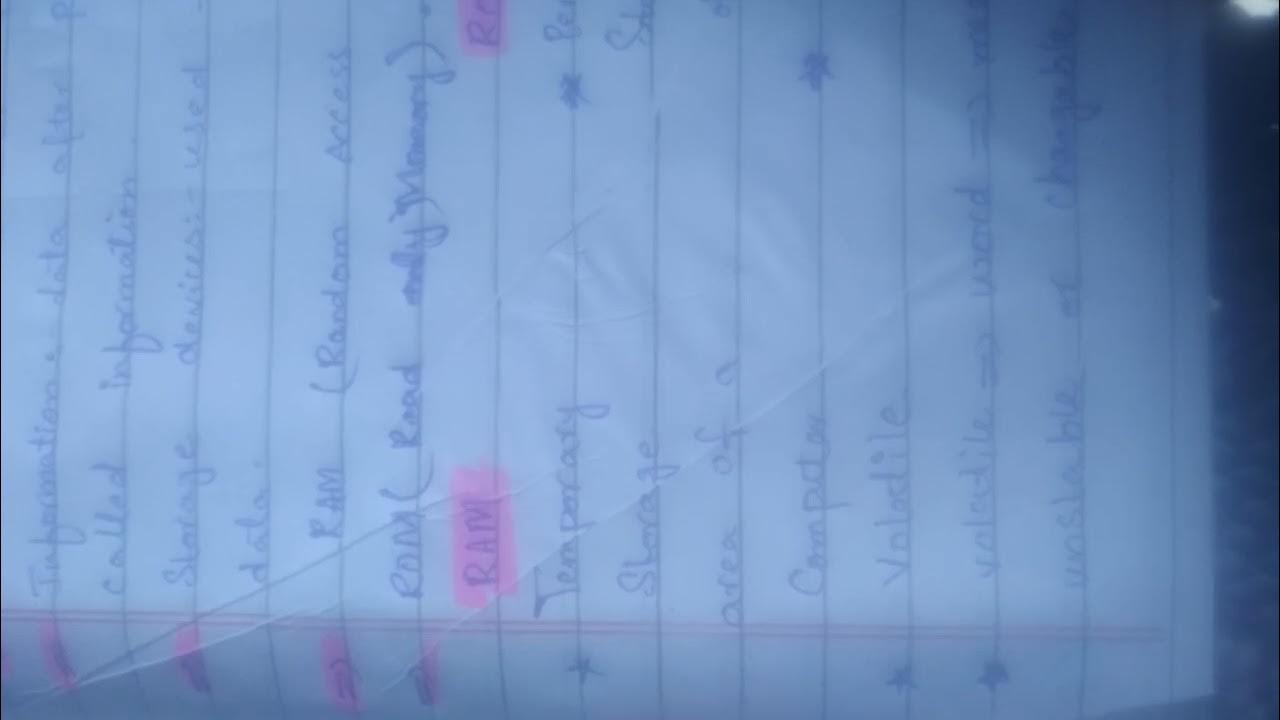 Information:- data after
called information
Storage devices:- used
data.
⇒ RAM (Random Access
ROM (Read only Memory)
RAM
* Temporary *
Storage
area of a
Computer *
* Volatile
* volatile ⇒ word ⇒
unstable or changable